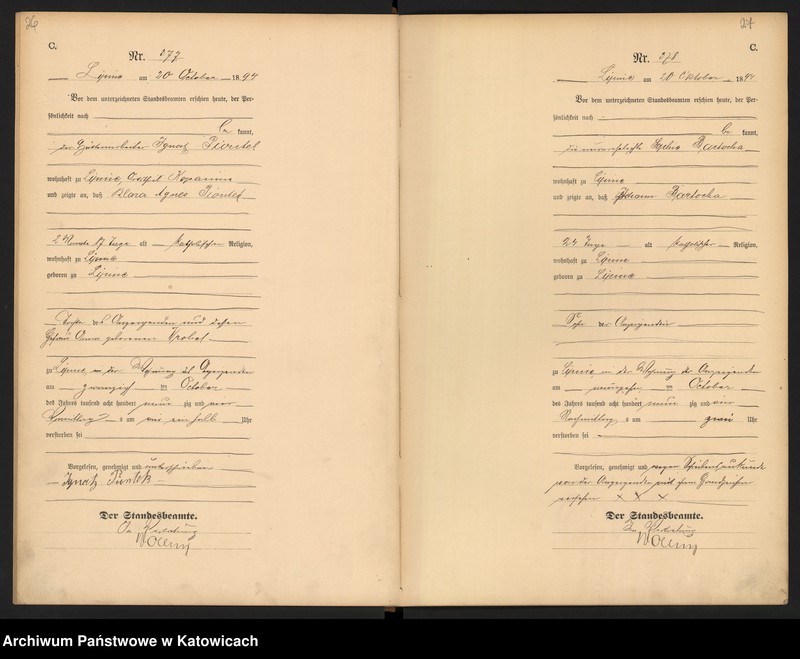 26
C.
Nr. 277
Lipine am 20 October 1894
Vor dem unterzeichneten Standesbeamten erschien heute, der Per-
sönlichkeit nach
be kannt,
der Ignatz Piontek
wohnhaft zu Lipine, Kopanina
und zeigte an, daß Klara Agnes Piontek
2 Monate 17 Tage alt katholischer Religion,
wohnhaft zu Lipine
geboren zu Lipine
Tochter des Anzeigenden und dessen
Ehefrau Anna geborenen
zu Lipine, in der Wohnung des Anzeigenden
am zwanzigsten October
des Jahres tausend acht hundert neun zig und vier
Vormittags um ein halb Uhr
verstorben sei
Vorgelesen, genehmigt und unterschrieben
Ignatz Piontek
Der Standesbeamte.
In Vertretung
27
C.
Nr. 278
Lipine am 20 Oktober 1894
Vor dem unterzeichneten Standesbeamten erschien heute, der Per-
sönlichkeit nach
be kannt,
die unverehelichte Bartocha
wohnhaft zu Lipine
und zeigte an, daß Johann Bartocha
24 Tage alt katholischer Religion,
wohnhaft zu Lipine
geboren zu Lipine
Sohn der Anzeigenden
zu Lipine in der Wohnung der Anzeigenden
am October
des Jahres tausend acht hundert neun zig und vier
Nachmittags um zwei Uhr
verstorben sei
Vorgelesen, genehmigt und wegen Schreibensunkunde
von der Anzeigenden mit ihrem Handzeichen
versehen X X X
Der Standesbeamte.
In Vertretung
Archiwum Państwowe w Katowicach